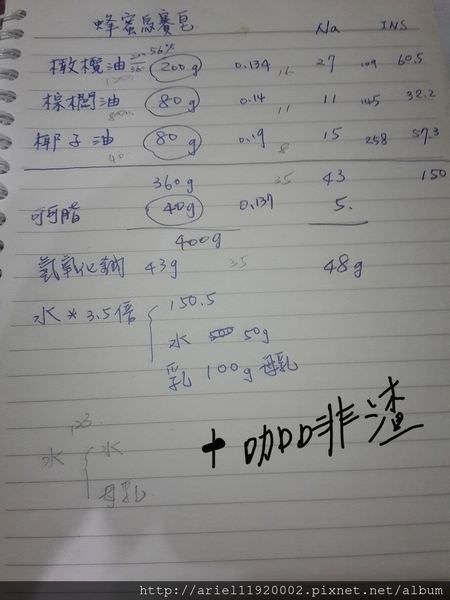 蜂蜜馬賽皂 Na INS
橄欖油 56% 200g 0.134 16 27 109 60.5
棕櫚油 80g 0.14 11 11 145 32.2
椰子油 80g 0.19 8 15 258 57.3
360g 35 43 150
可可脂 40g 0.137 5.
400g
氫氧化鈉 43g 35 48g
水*3.5倍 150.5
水 50g
乳 100g 母乳
+咖啡渣
水 水
母乳
http://ariel11920002.pixnet.net/album